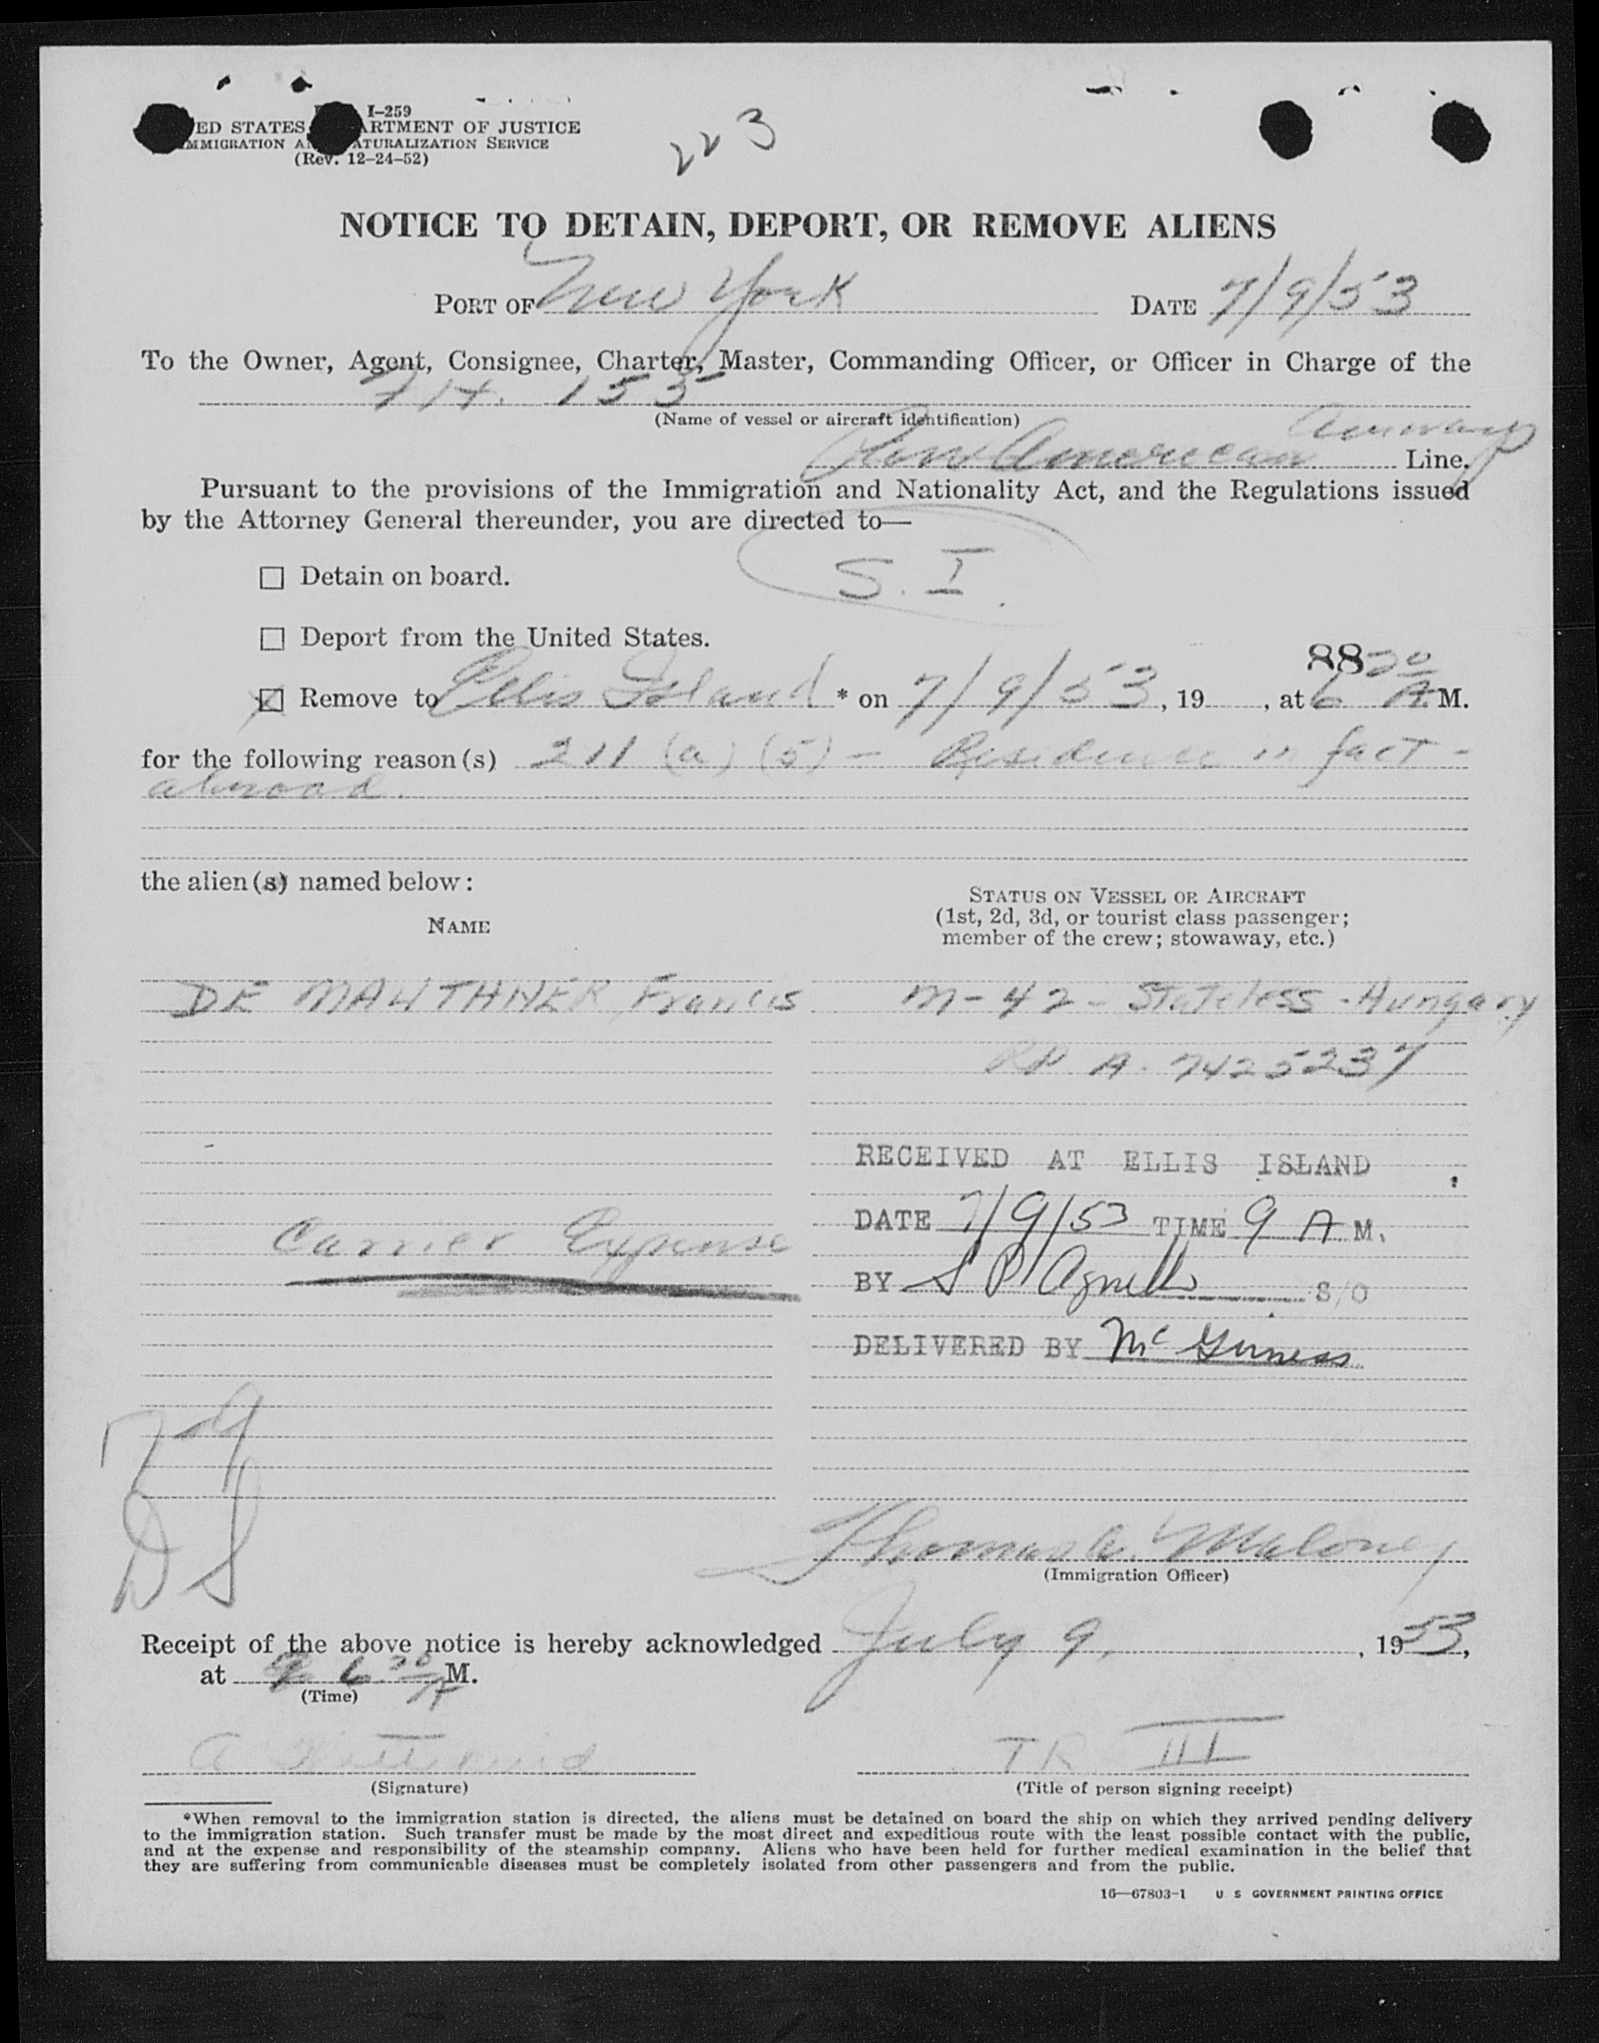 I-259
ED STATES ARTMENT OF JUSTICE
MMIGRATION A ATURALIZATION SERVICE
(Rev. 12-24-52)
223
NOTICE TO DETAIN, DEPORT, OR REMOVE ALIENS
PORT OF New York DATE 7/9/53
To the Owner, Agent, Consignee, Charter, Master, Commanding Officer, or Officer in Charge of the
Flt. 155
(Name of vessel or aircraft identification)
Pan American Airways Line.
Pursuant to the provisions of the Immigration and Nationality Act, and the Regulations issued
by the Attorney General thereunder, you are directed to—
S. I.
☐ Detain on board.
☐ Deport from the United States.
88
☒ Remove to Ellis Island * on 7/9/53, 19 , at 6 20 A.M.
for the following reason(s) 211 (a) (5) - Residence in fact -
abroad.
the alien(s) named below:
NAME
STATUS ON VESSEL OR AIRCRAFT
(1st, 2d, 3d, or tourist class passenger;
member of the crew; stowaway, etc.)
DE MAUTHNER, Francis M-42- Stateless-Hungary
RP A-7425237
RECEIVED AT ELLIS ISLAND
DATE 7/9/53 TIME 9 A M.
Carrier Expense
BY S P Agnello S/O
DELIVERED BY McGuiness
7/9
DS
Thomas A. Maloney
(Immigration Officer)
Receipt of the above notice is hereby acknowledged July 9, , 1953,
at 6 20 A M.
(Time)
A TR III
(Signature) (Title of person signing receipt)
*When removal to the immigration station is directed, the aliens must be detained on board the ship on which they arrived pending delivery
to the immigration station. Such transfer must be made by the most direct and expeditious route with the least possible contact with the public,
and at the expense and responsibility of the steamship company. Aliens who have been held for further medical examination in the belief that
they are suffering from communicable diseases must be completely isolated from other passengers and from the public.
16—67803-1 U S GOVERNMENT PRINTING OFFICE